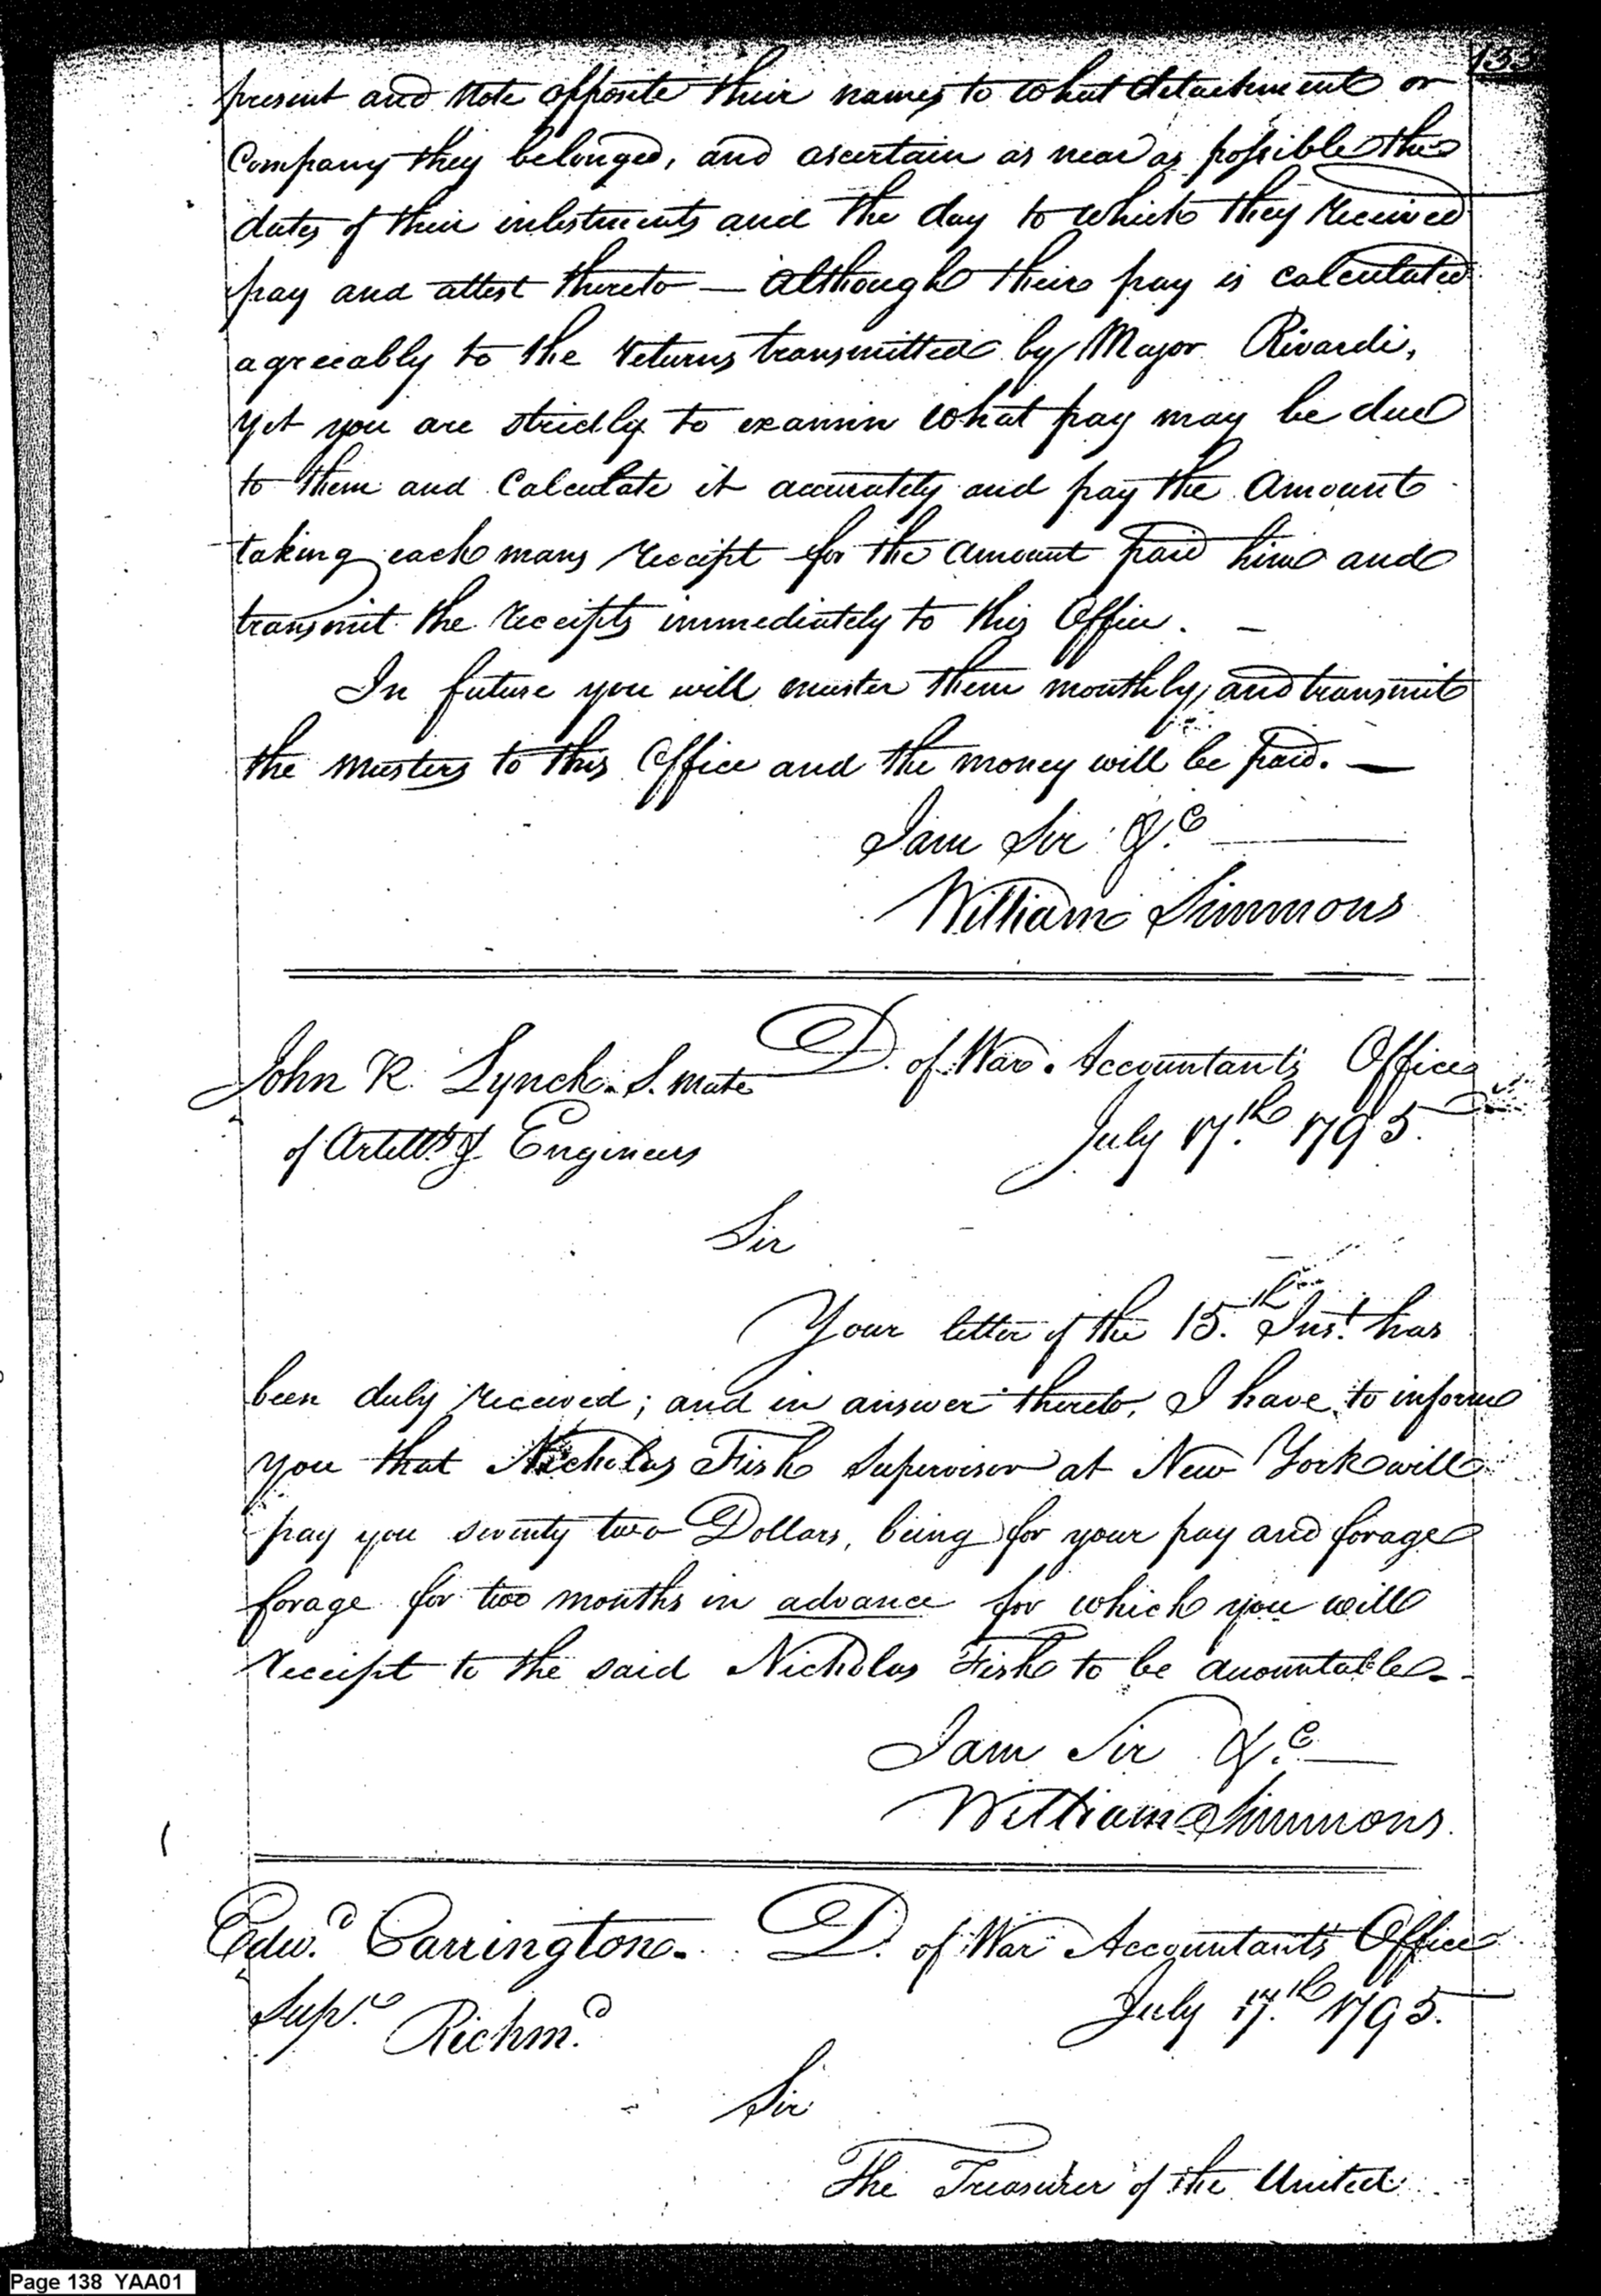 133
present and note opposite their names to what detachment or
Company they belonged, and ascertain as near as possible the
dates of their inlistments and the day to which they received
pay and attest thereto — Although their pay is calculated
agreeably to the returns transmitted by Major Rivardi,
yet you are strictly to examin what pay may be due
to them and Calculate it accurately and pay the Amount
taking each mans receipt for the amount paid him and
transmit the receipts immediately to this Office. —
In future you will muster them monthly, and transmit
the musters to this Office and the money will be paid. —
I am Sir &c
William Simmons
John R. Lynch. S. mate
of Artillts & Engineers
D. of War. Accountants Office
July 17th 1795.
Sir
Your letter of the 15.th Inst. has
been duly received; and in answer thereto, I have to inform
you that Nicholas Fish Supervisor at New York will
pay you seventy two Dollars, being for your pay and forage
forage for two months in advance for which you will
receipt to the said Nicholas Fish to be accountable. -
I am Sir &c
William Simmons.
Edwd Carrington.
Supr. Richmd
D. of War Accountants Office
July 17th 1795.
Sir
The Treasurer of the United
Page 138 YAA01